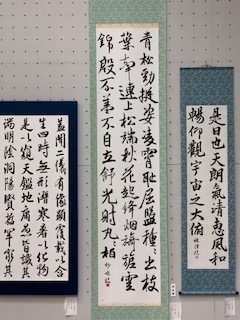 是日也天朗氣清惠風和
暢仰觀宇宙之大俯
青松勁挺姿凌霄恥屈盤種種出枝
葉牽連上松端秋花起絳烟旖旎雲
錦殷不羞不自立舒光射丸柏
蓋聞二儀有像顯覆載以含
生四時無形潛寒暑以化物
是以窺天鑑地庸愚皆識其
端明陰洞陽賢哲罕窮其